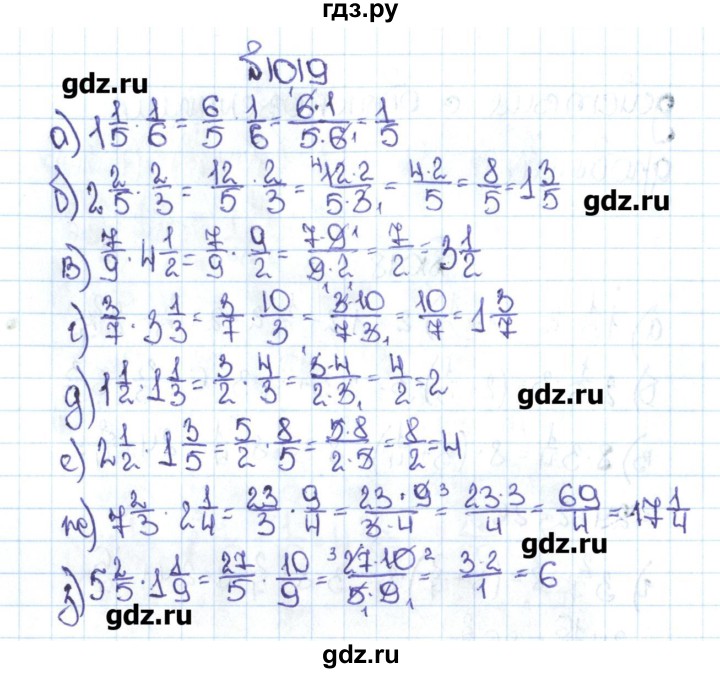 гдз.ру
№1019
gdz.ru
а) 1 1/5 · 1/6 = 6/5 · 1/6 = 6·1/5·6 = 1/5
б) 2 2/5 · 2/3 = 12/5 · 2/3 = 12·2/5·3 = 4·2/5 = 8/5 = 1 3/5
gdz.ru
в) 7/9 · 4 1/2 = 7/9 · 9/2 = 7·9/9·2 = 7/2 = 3 1/2
г) 3/7 · 3 1/3 = 3/7 · 10/3 = 3·10/7·3 = 10/7 = 1 3/7
д) 1 1/2 · 1 1/3 = 3/2 · 4/3 = 3·4/2·3 = 4/2 = 2
gdz.ru
е) 2 1/2 · 1 3/5 = 5/2 · 8/5 = 5·8/2·5 = 8/2 = 4
ж) 7 2/3 · 2 1/4 = 23/3 · 9/4 = 23·9/3·4 = 23·3/4 = 69/4 = 17 1/4
gdz.ru
з) 5 2/5 · 1 1/9 = 27/5 · 10/9 = 27·10/5·9 = 3·2/1 = 6
gdz.ru
gdz.ru